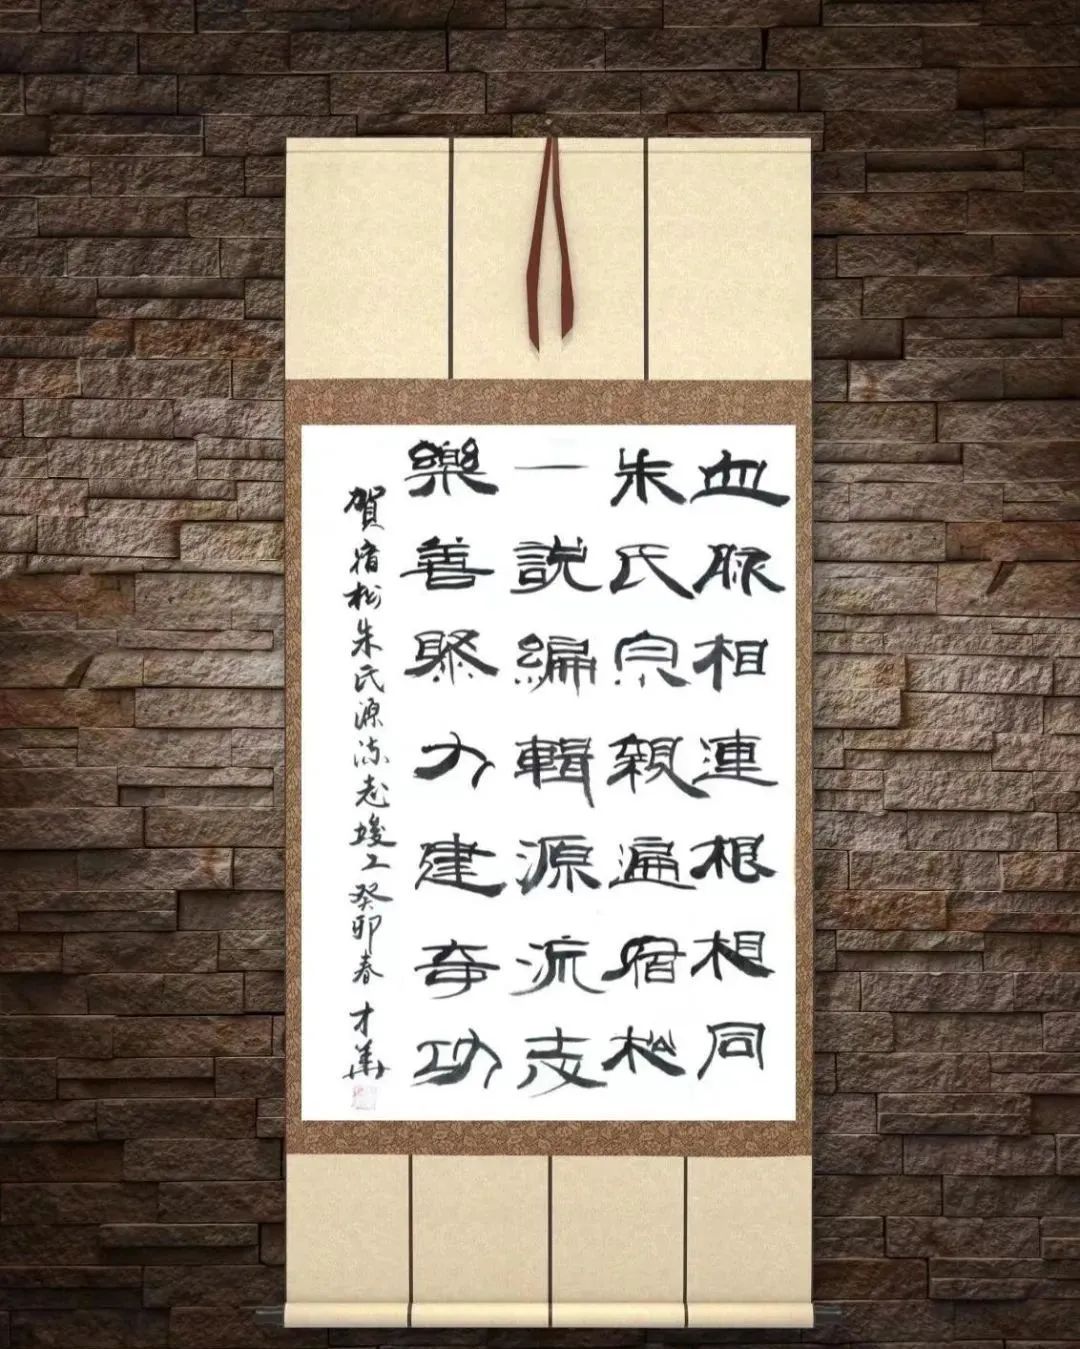 血脈相連根相同
朱氏宗親遍宿松
一說編輯源流支
樂善聚力建奇功
賀宿松朱氏源流志竣工癸卯春 才華